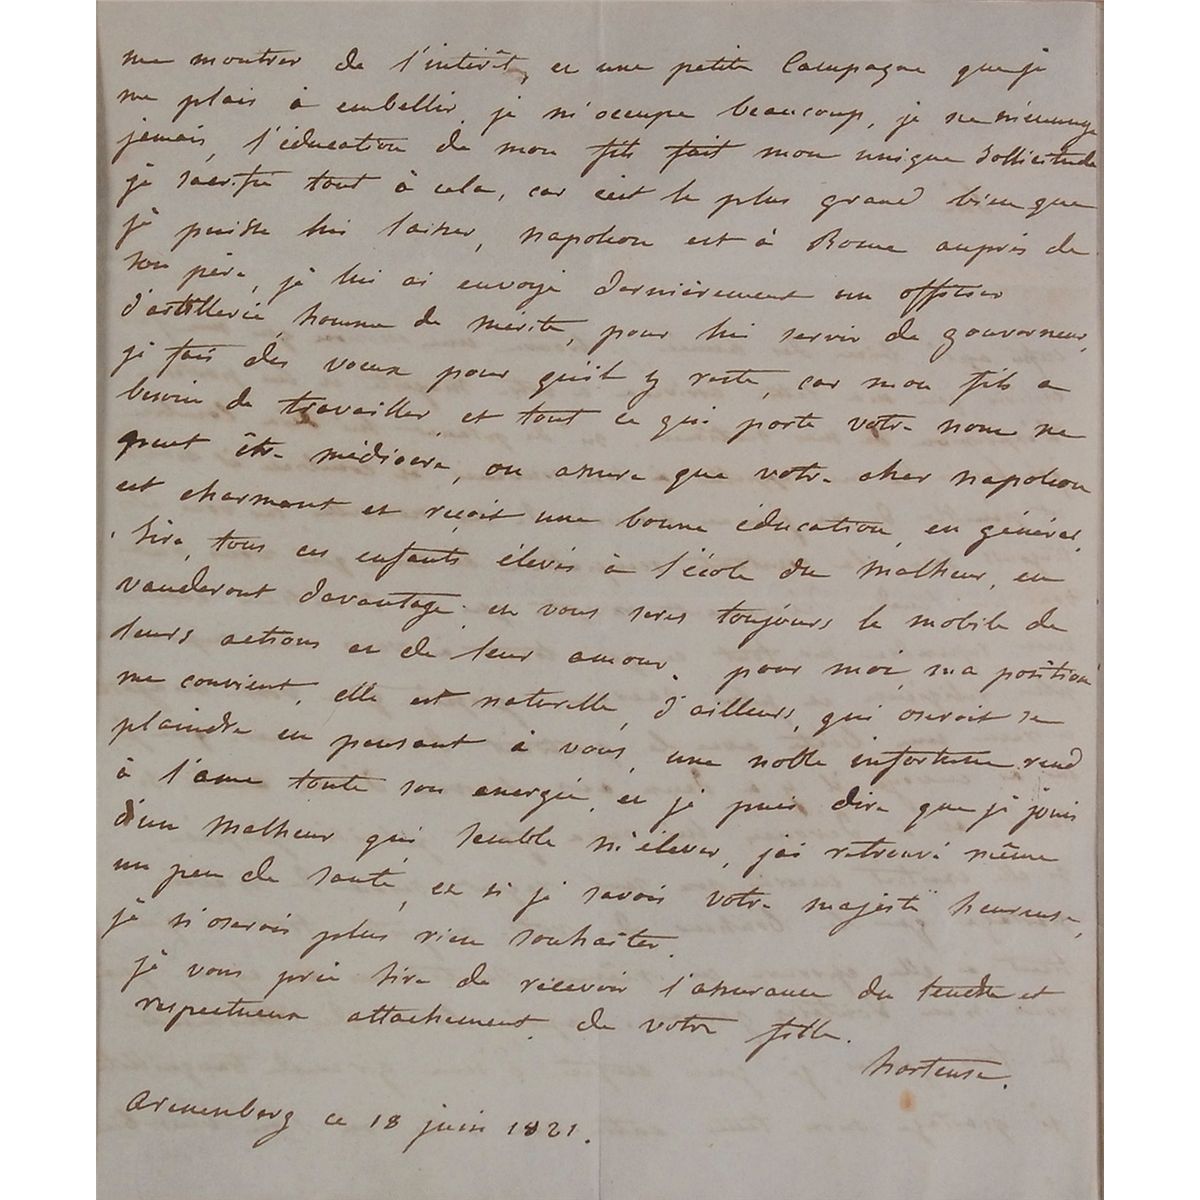 me montrer de l'intérêt, et une petite Campagne que je
me plais à embellir, je m'occupe beaucoup, je ne m'ennuye
jamais, l'éducation de mon fils fait mon unique sollicitude
je sacrifie tout à cela, car c'est le plus grand bien que
je puisse lui laisser, napoleon est à Rome auprès de
son père, je lui ai envoyé dernièrement un officier
d'artillerie, homme de mérite, pour lui servir de gouverneur,
je fais des voeux pour qu'il y reste, car mon fils a
besoin de travailler, et tout ce qui porte votre nom ne
peut être médiocre, on assure que votre cher napoleon
est charmant et reçoit une bonne éducation, en général,
Sire, tous ces enfants élevés à l'école du malheur, en
vauderont davantage, et vous serez toujours le mobile de
leurs actions et de leur amour. pour moi, ma position
me convient, elle est naturelle, d'ailleurs, qui oseroit se
plaindre en pensant à vous, une noble infortune rend
à l'ame toute son energie, et je puis dire que je jouis
d'un malheur qui semble m'élever, j'ai retrouvé même
un peu de santé, et si je savois votre majesté heureuse,
je n'oserois plus rien souhaiter.
je vous prie Sire de recevoir l'assurance du tendre et
respectueux attachement de votre fille.
hortense.
Arenenberg ce 18 juin 1821.